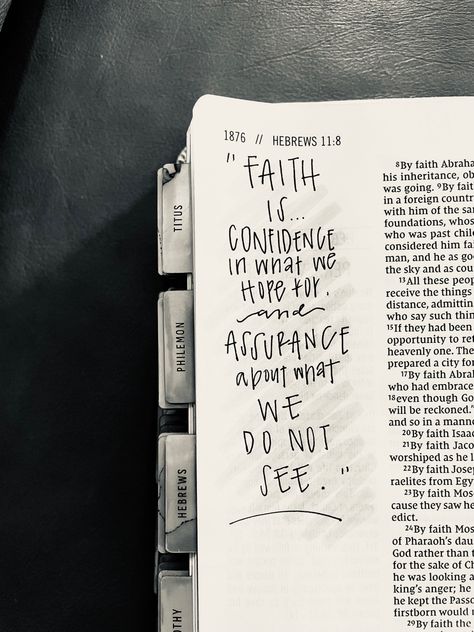 1876 // HEBREWS 11:8
"FAITH
IS...
CONFIDENCE
IN WHAT WE
HOPE FOR.
and
ASSURANCE
about what
WE
DO NOT
SEE."
TITUS
PHILEMON
HEBREWS
OTHY
8By faith Abraha
his inheritance, ob
was going. 9By fait
in a foreign countr
with him of the sa
foundations, whos
who was past chil
considered him fa
man, and he as go
the sky and as cou
13All these peop
receive the things
distance, admittin
who say such thin
15If they had been
opportunity to ret
heavenly one. The
prepared a city for
17By faith Abrah
who had embrace
18even though Go
will be reckoned."
and so in a manne
20By faith Isaac
21By faith Jaco
worshiped as he l
22By faith Josep
raelites from Egyp
23By faith Mos
cause they saw he
edict.
24By faith Mo
of Pharaoh's dau
God rather than t
for the sake of Ch
he was looking a
king's anger; he
he kept the Passo
firstborn would n
29By faith the